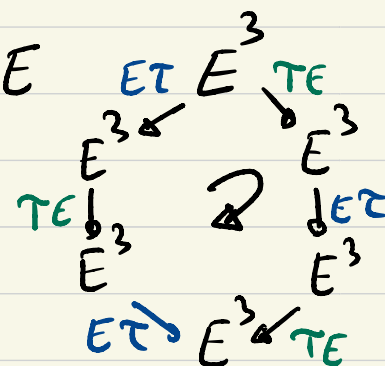 E Eτ E³ τE
E³ E³
τE Eτ
E³ E³
Eτ E³ τE